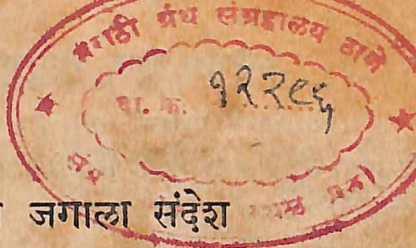 मराठी ग्रंथ संग्रहालय ठाणे
दा. क. १२२९६
जगाला संदेश